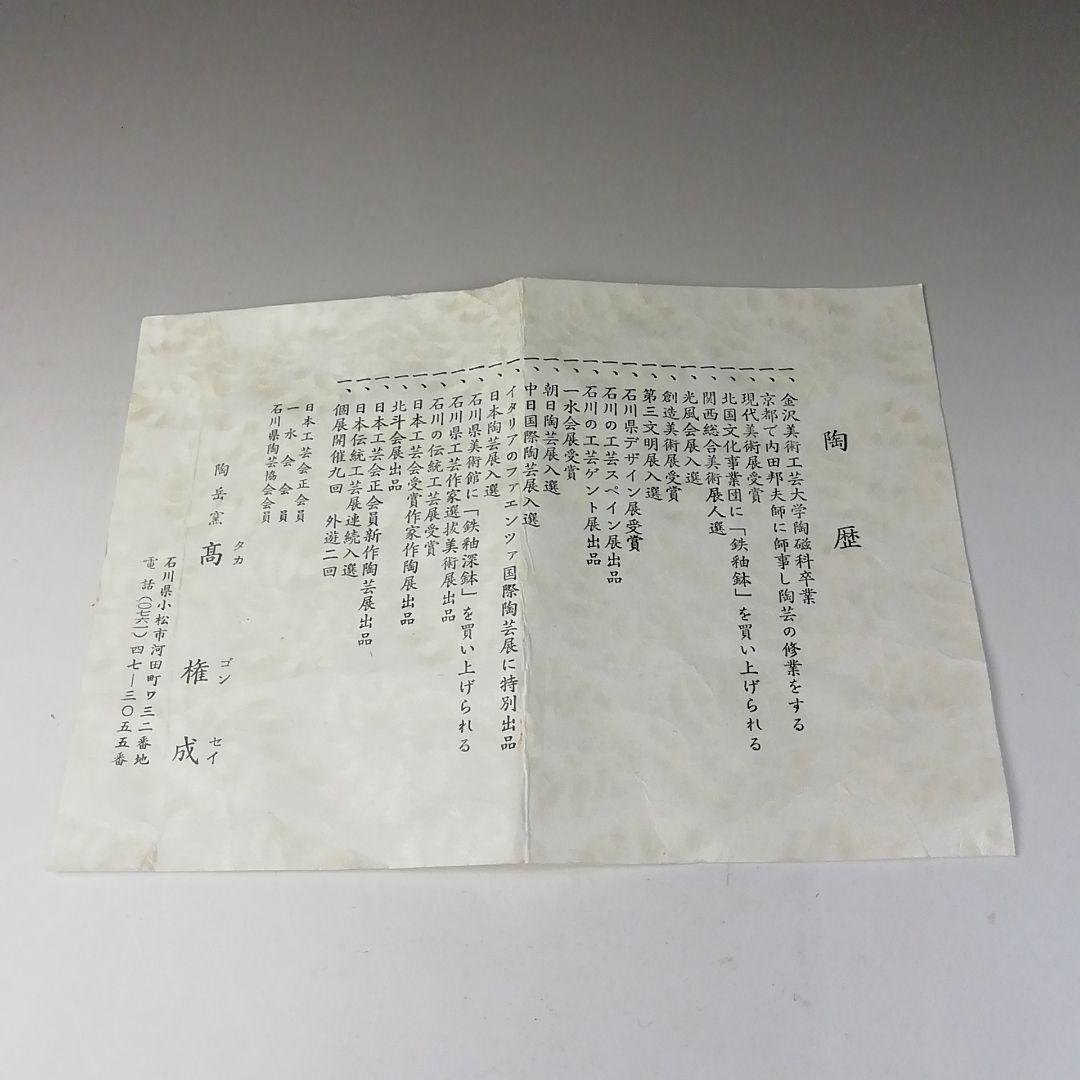 陶歴
一、金沢美術工芸大学陶磁科卒業
一、京都で内田邦夫師に師事し陶芸の修業をする
一、現代美術展受賞
一、北国文化事業団に「鉄釉鉢」を買い上げられる
一、関西総合美術展入選
一、光風会展入選
一、創造美術展受賞
一、第三文明展入選
一、石川県デザイン展受賞
一、石川の工芸スペイン展出品
一、石川の工芸ゲント展出品
一、一水会展受賞
一、朝日陶芸展入選
一、中日国際陶芸展入選
一、イタリアのファエンツァ国際陶芸展に特別出品
一、日本陶芸展入選
一、石川県美術館に「鉄釉深鉢」を買い上げられる
一、石川県工芸作家選抜美術展出品
一、石川の伝統工芸展受賞
一、日本工芸会受賞作家作陶展出品
一、北斗会展出品
一、日本工芸会正会員新作陶芸展出品
一、日本伝統工芸展連続入選
一、個展開催九回 外遊二回
日本工芸会正会員
一水会会員
石川県陶芸協会会員
陶岳窯 髙 権成
タカ ゴン セイ
石川県小松市河田町ワ三二番地
電話(〇七六一)四七―三〇五五番